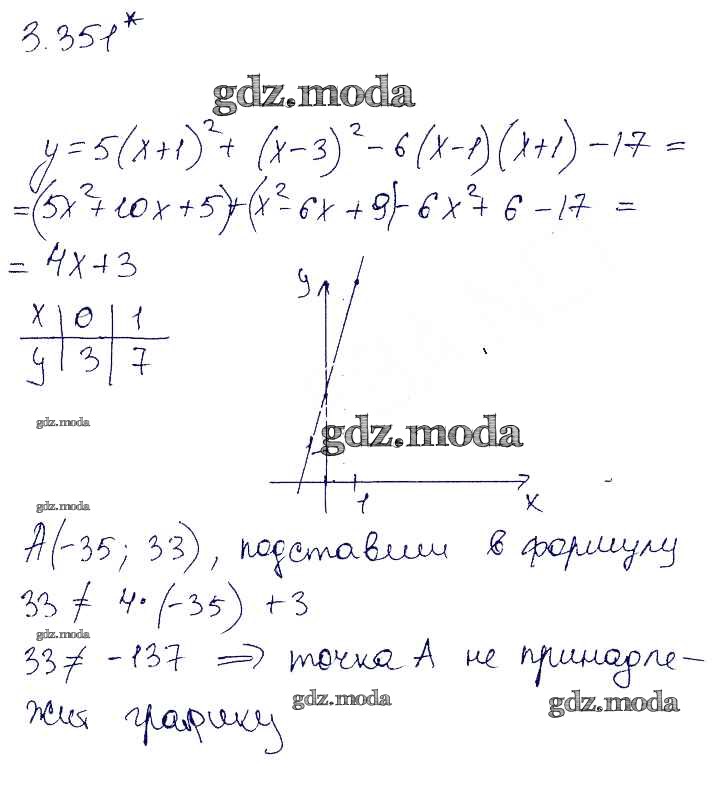 3.351*
gdz.moda
y = 5(x+1)² + (x-3)² - 6(x-1)(x+1) - 17 =
= (5x² + 10x + 5) + (x² - 6x + 9) - 6x² + 6 - 17 =
= 4x + 3
x | 0 | 1
y | 3 | 7
y
gdz.moda
gdz.moda
1
x
gdz.moda
A(-35; 33), подставим в формулу
33 ≠ 4·(-35) + 3
gdz.moda
33 ≠ -137 => точка А не принадле-
жит графику
gdz.moda
gdz.moda